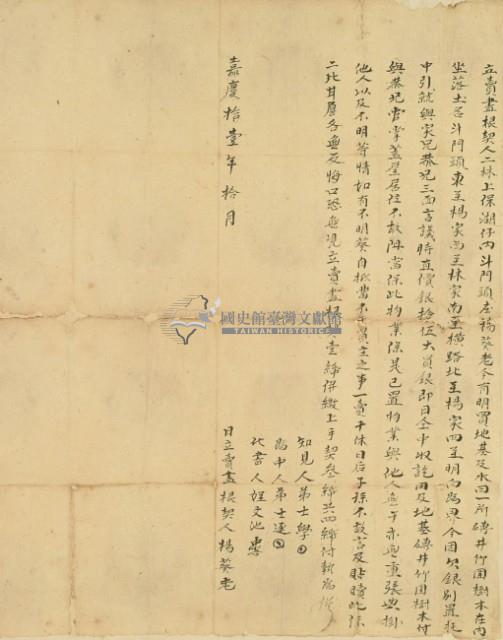 立賣盡根契人二林上保湖仔內斗門頭庄楊葵老今有明買地基及水田一所磚井竹囲樹木在內
坐落土名斗門頭東至楊家西至林家南至橫路北至楊家四至明白為界今因欠銀別置托
中引就與家兄恭記三面言議時直價銀拾伍大員銀即日仝中收訖田及地基磚井竹囲樹木付
與恭記官掌盖屋居住不敢阻當保此物業係是己置物業與他人無干亦無重張典掛
他人以及不明等情如有不明葵自抵當不干買主之事一賣千休日后子孫不敢言及貼贖此係
二比甘愿各無反悔口恐無凴立賣盡根契壹紙併繳上手契叁紙共四紙付執為炤
知見人弟士學
為中人弟士連
代書人姪文池
嘉慶拾壹年拾月 日立賣盡根契人楊葵老
國史館臺灣文獻館
TAIWAN HISTORICA